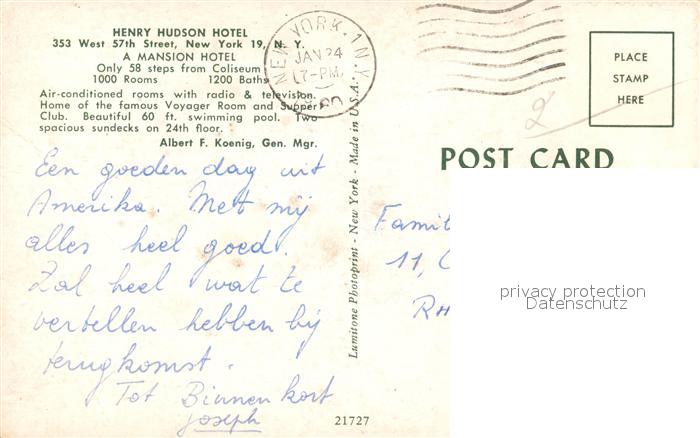 HENRY HUDSON HOTEL
353 West 57th Street, New York 19, N. Y.
A MANSION HOTEL
Only 58 steps from Coliseum
1000 Rooms 1200 Baths
Air-conditioned rooms with radio & television.
Home of the famous Voyager Room and Supper
Club. Beautiful 60 ft. swimming pool. Two
spacious sundecks on 24th floor.
Albert F. Koenig, Gen. Mgr.
NEW YORK, 1 N.Y.
JAN 24
7-PM
Een goeden dag uit
Amerika. Met mij
alles heel goed.
Zal heel wat te
vertellen hebben bij
terugkomst.
Tot Binnen kort
Joseph
Lumitone Photoprint - New York - Made in U.S.A.
21727
PLACE
STAMP
HERE
2
POST CARD
Famil
11,
RH
privacy protection
Datenschutz